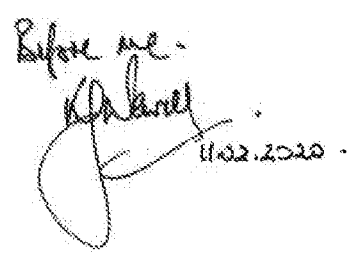 Before me.
11.02.2020.